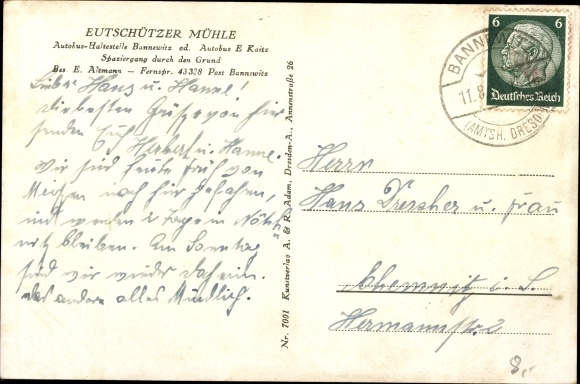 EUTSCHÜTZER MÜHLE
Autobus-Haltestelle Bannewitz od. Autobus E Kaitz
Spaziergang durch den Grund
Bes. E. Altmann – Fernspr. 43328 Post Bannewitz
Lieber Hans u. Hanne!
Die besten Grüße von hier
senden Euch
Herbert u. Hanne.
Wir sind heute früh von
Meißen nach hier gefahren,
und werden 2 Tage in Nöth-
nitz bleiben. Am Sonntag
sind wir wieder daheim.
das andere alles Mündlich.
Nr. 7001 Kunstverlag A. & R. Adam, Dresden-A., Annenstraße 26
6 6
Deutsches Reich
BANNEWITZ
11.8.
(AMTSH. DRESD
Herrn
Hans Drescher u. Frau
Chemnitz i. S.
Hermannstr. 2